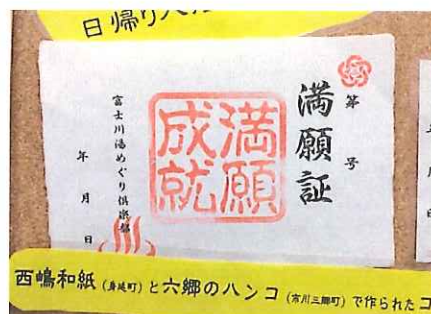 日帰り入
第 号
満願証
満願
成就
富士川湯めぐり倶楽部
年 月 日
西嶋和紙(身延町)と六郷のハンコ(市川三郷町)で作られたコ